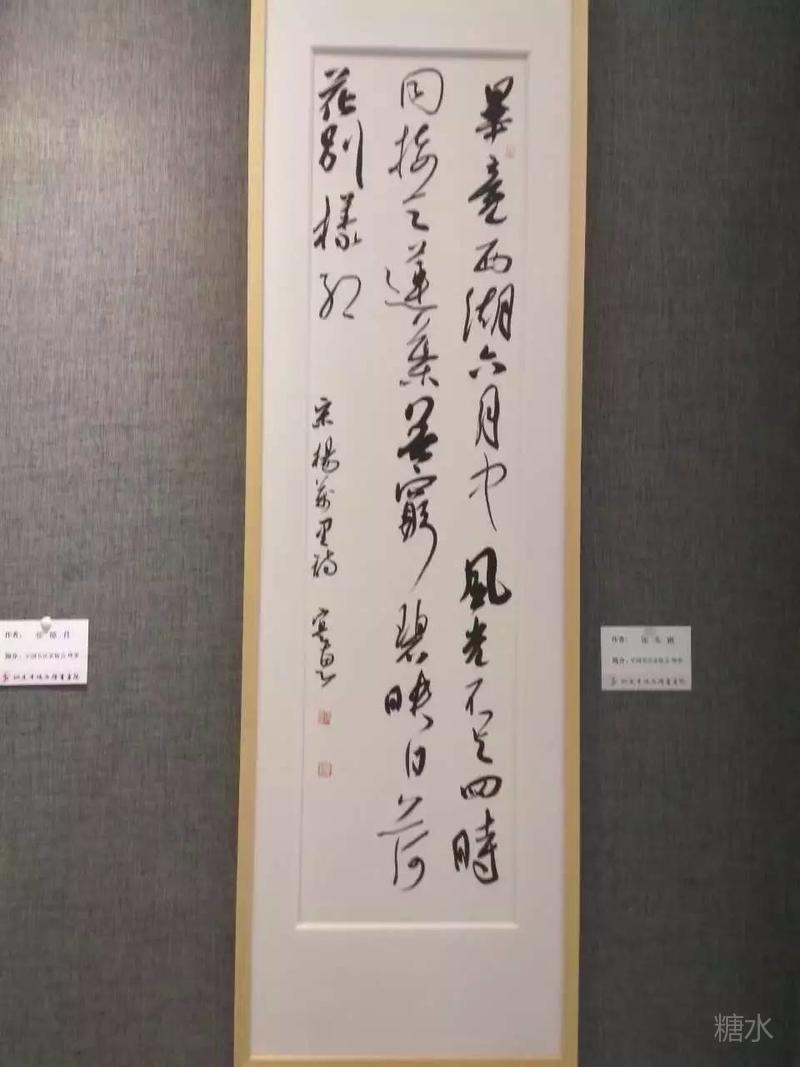 畢竟西湖六月中風光不与四時
同接天蓮葉無窮碧映日荷
花別樣紅 宋楊萬里詩
作者：
作者：
糖水